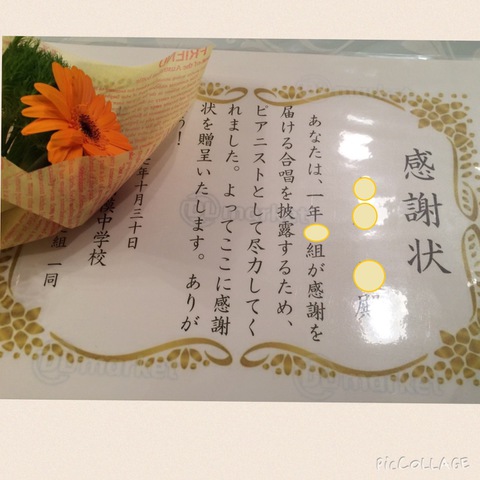 感謝状
殿
あなたは、一年
組が感謝を
届ける合唱を披露するため、
ピアニストとして尽力してく
れました。よってここに感謝
状を贈呈いたします。ありが
う!
年十月三十日
中学校
組一同
FRIEND
market
market
PICCOLLAGE